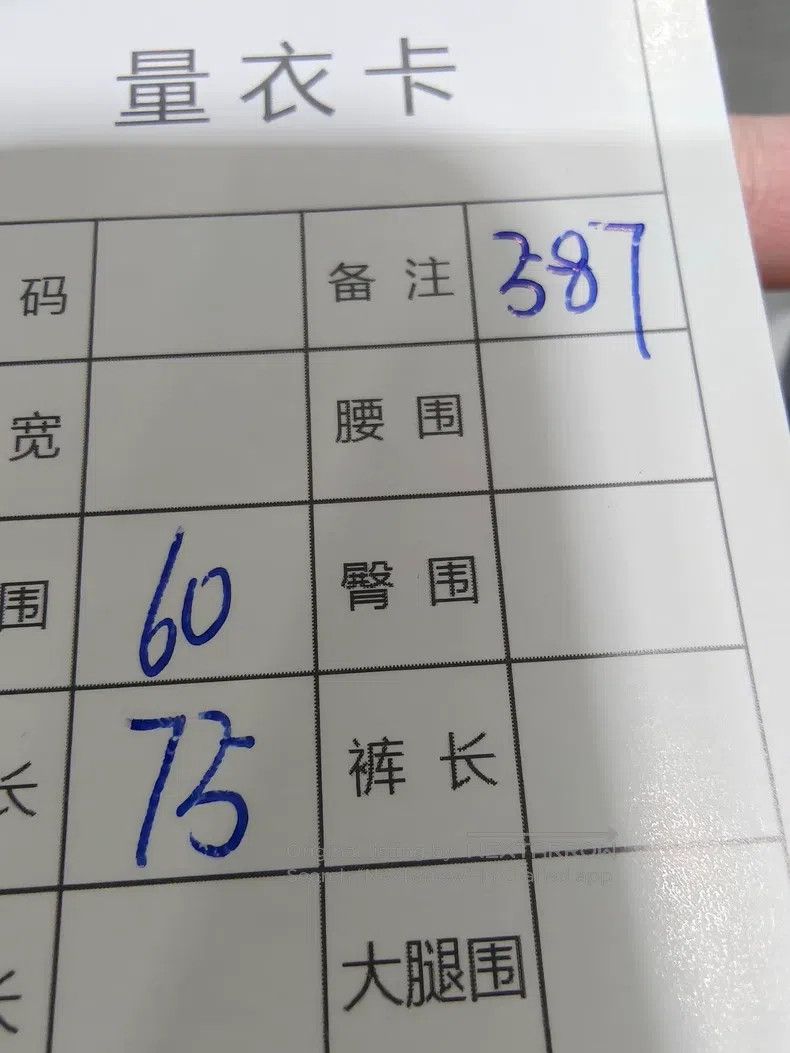 量衣卡
码 备注 587
宽 腰围
围 60 臀围
长 75 裤长
长 大腿围